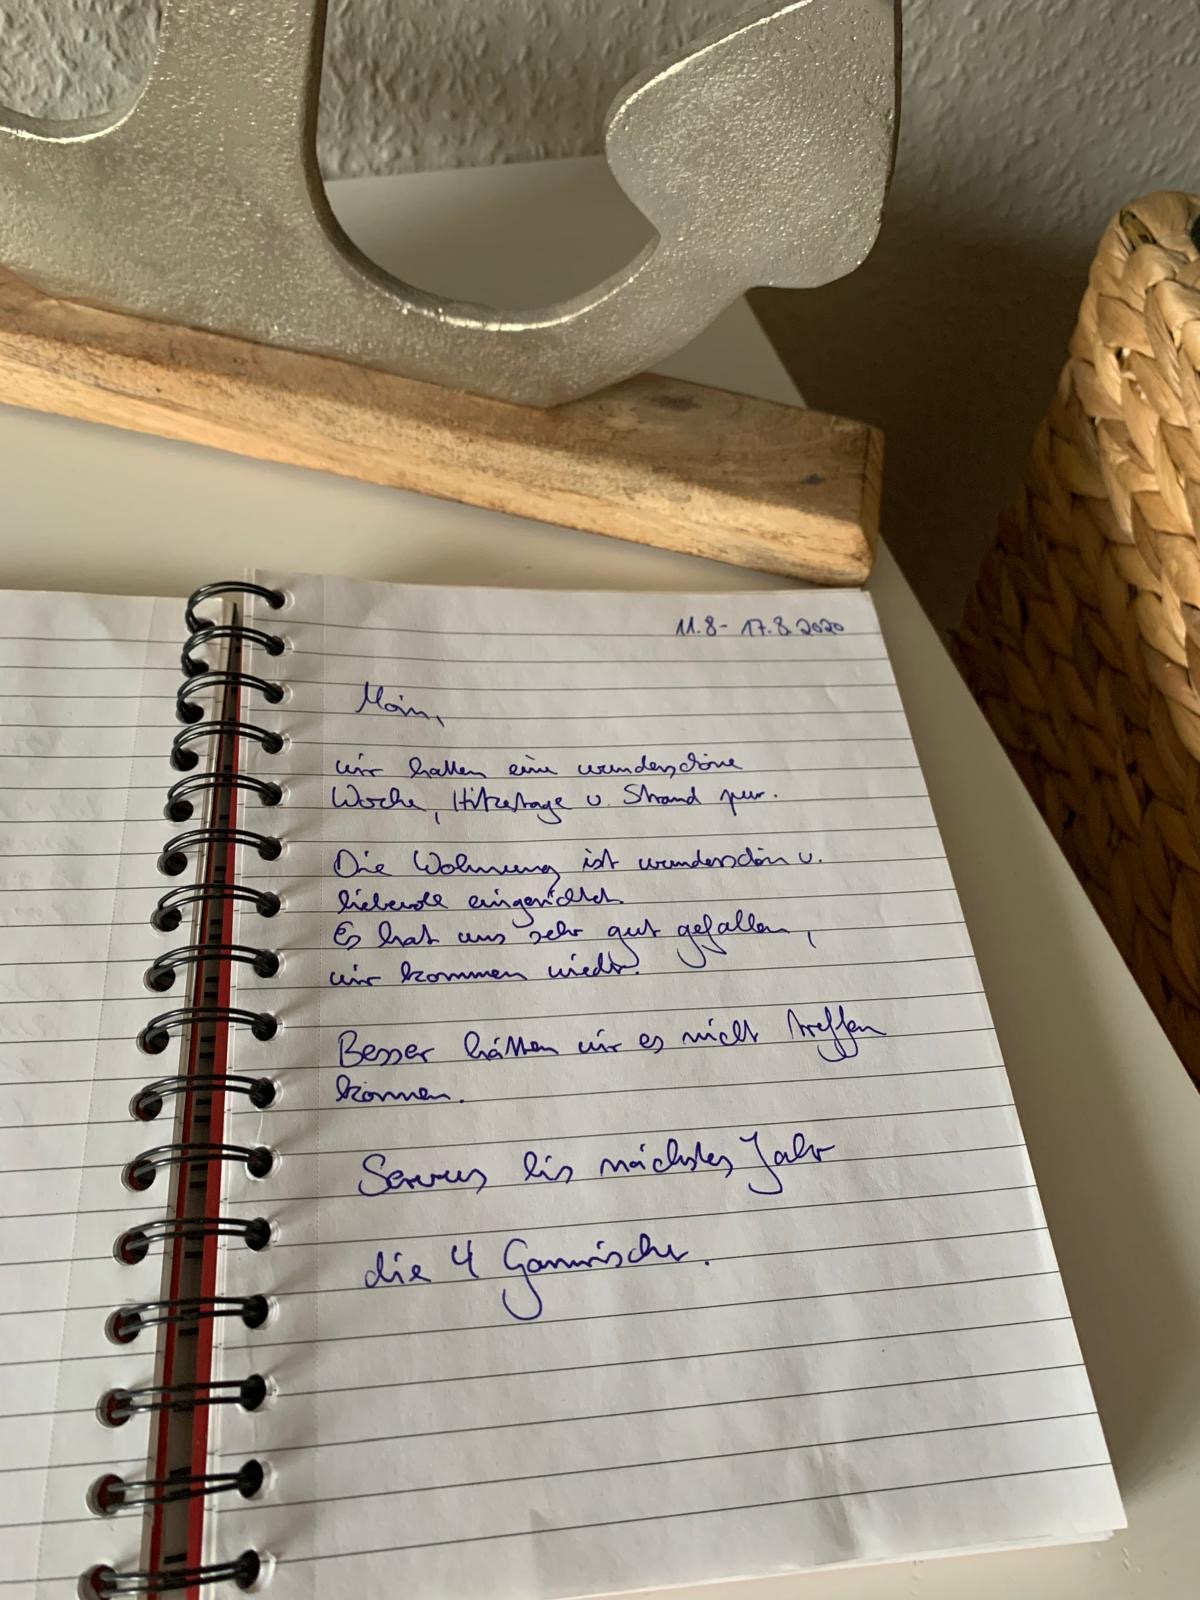 11.8 - 17.8.2020
Moin,
wir hatten eine wunderschöne
Woche, Hitzetage u. Strand pur.
Die Wohnung ist wunderschön u.
liebevoll eingerichtet.
Es hat uns sehr gut gefallen,
wir kommen wieder.
Besser hätten wir es nicht treffen
können.
Servus bis nächstes Jahr
die 4